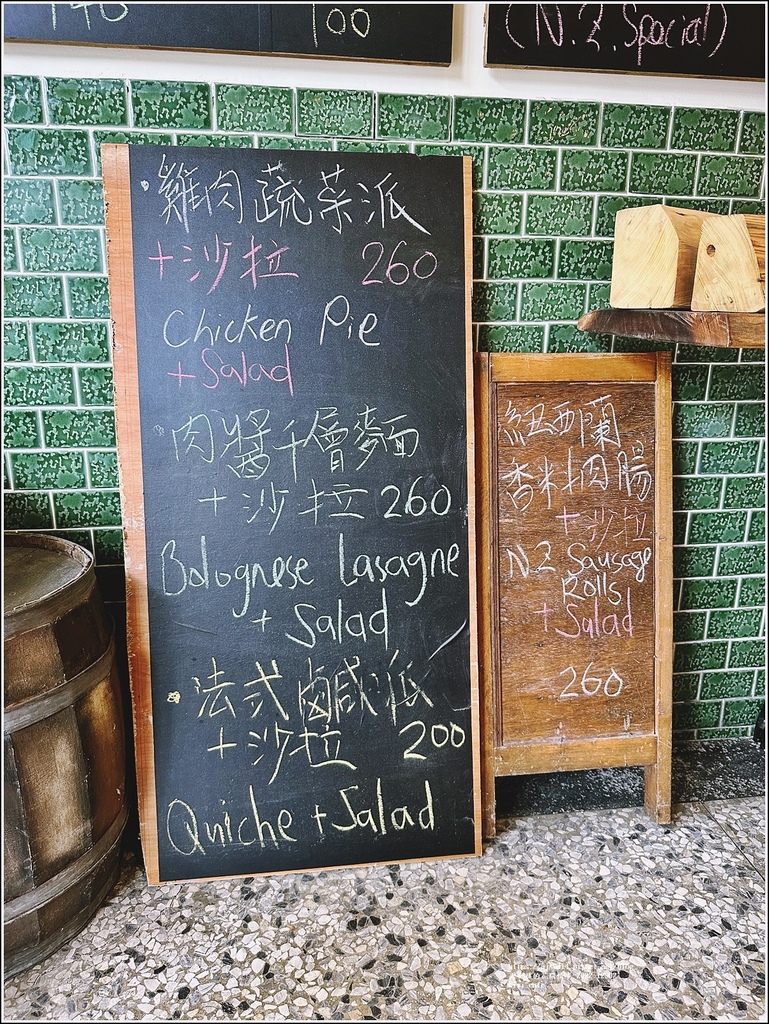 100
(N.Z. Special)
雞肉蔬菜派
+沙拉 260
Chicken Pie
+ Salad
肉醬千層麵
+沙拉 260
Bolognese Lasagne
+ Salad
法式鹹派
+沙拉 200
Quiche + Salad
紐西蘭
香料肉腸
+沙拉
N.Z Sausage
Rolls
+ Salad
260